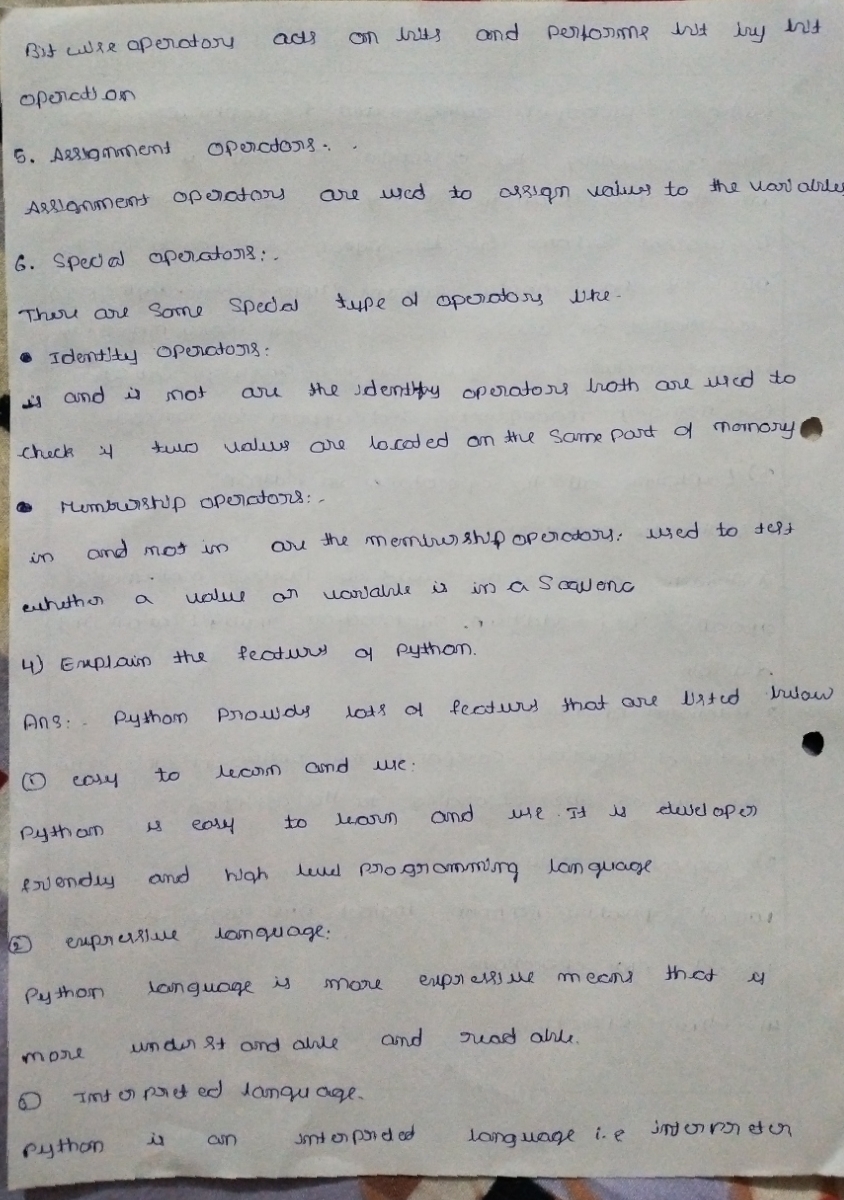 Bit wise operators acts on bits and performs bit by bit
operation
5. Assignment operators:.
Assignment operators are used to assign values to the variables
6. Special operators:.
There are some special type of operators like.
• Identity operators:
is and is not are the identity operators both are used to
check if two values are located on the same part of momory
• Membership operators:-
in and not in are the membership operators. used to test
whether a value or variable is in a
4) Explain the features of python.
Ans:. Python provids lots of features that are listed below
① easy to learn and use:
Python is easy to learn and use. It is developer
friendly and high level programming language
② expressive language:
Python language is more expressive means that if
more understandable and readable.
Interpreted language.
Python is an interpreted language i.e interpreter